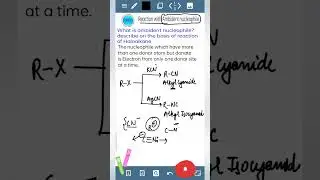 at a time.
Reaction with Ambident nucleophile
What is ambident nucleophile?
describe on the basis of reaction
of Haloalkane
The nucleophile which have more
than one donar atom but donate
is Electron from only one donor site
at a time.
KCN
R-CN
Alkyl cyanide
R-X
AgCN
R-NC
Alkyl Isocyanid
CN
C-N
C≡N:
yl Isocyanid